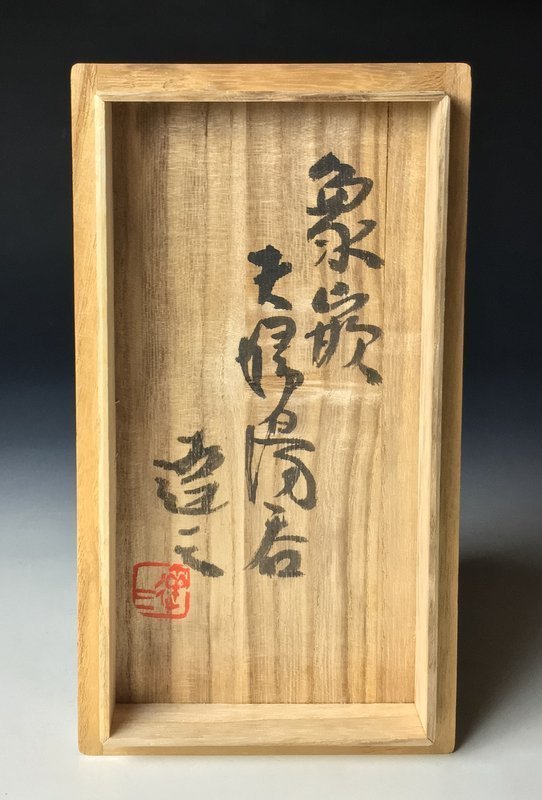 象嵌
夫婦湯呑
達三